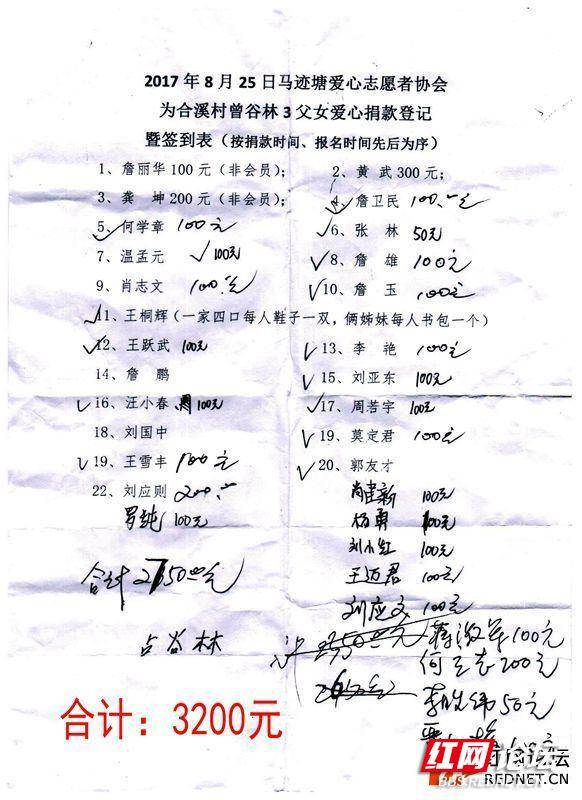 2017年8月25日马迹塘爱心志愿者协会
为合溪村曾谷林3父女爱心捐款登记
暨签到表（按捐款时间、报名时间先后为序）
1、詹丽华100元（非会员）； 2、黄 武300元；
3、龚 坤200元（非会员）； 4、詹卫民 100元
5、何学章 100元 6、张 林 50元
7、温孟元 100元 8、詹 雄 100元
9、肖志文 100元 10、詹 玉 100元
11、王桐辉（一家四口每人鞋子一双，俩姊妹每人书包一个）
12、王跃武 100元 13、李 艳 100元
14、詹 鹏 15、刘亚东 100元
16、汪小春 100元 17、周若宇 100元
18、刘国中 19、莫定君 100元
19、王雪丰 100元 20、郭友才
22、刘应则 200 肖建新 100元
罗纯 100元 杨勇 100元
刘小红 100元
合计 2750元 王迈君 100元
刘应文 100元
占谷林 100元
200元
50元
合计：3200元
红网论坛
BBS.REDNET.CN
REDNET.CN